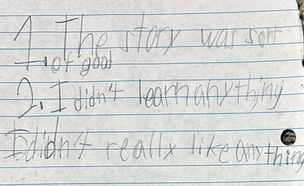 1. The story was sort
of good
2. I didn't learn anything
I didn't really like anything